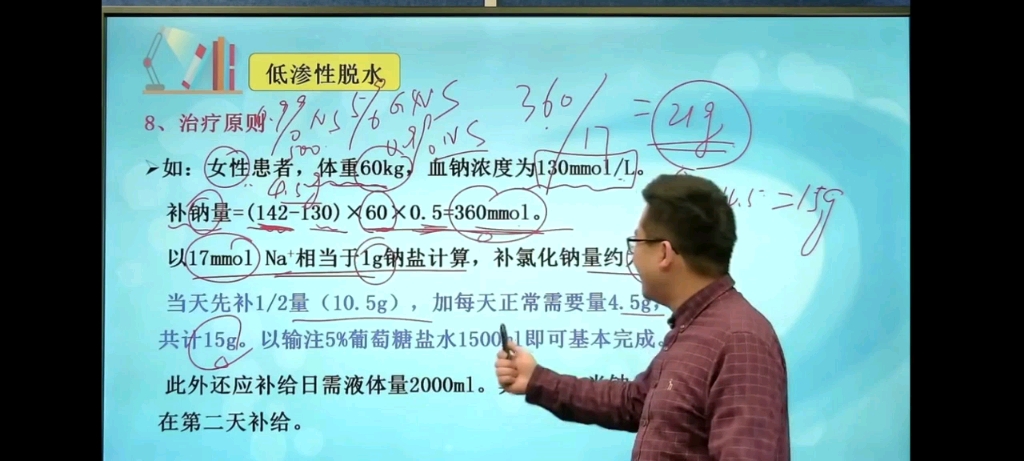 低渗性脱水
8、治疗原则
0.9% NS 5% GNS
500 0.9% NS
360/17 = 21g
➤如：女性患者，体重60kg，血钠浓度为130mmol/L。
4.5g
4.5 = 15g
补钠量=(142-130)×60×0.5=360mmol。
以17mmol Na⁺相当于1g钠盐计算，补氯化钠量约
当天先补1/2量（10.5g），加每天正常需要量4.5g，
共计15g。以输注5%葡萄糖盐水1500ml即可基本完成。
此外还应补给日需液体量2000ml。
在第二天补给。